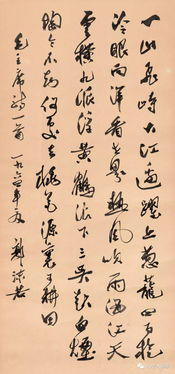 一山飛峙大江邊躍上葱蘢四百旋
冷眼向洋看世界熱風吹雨洒江天
雲橫九派浮黃鶴浪下三吳起白煙
陶令不知何處去桃花源裏可耕田
毛主席詩一首 一九六四年夏 郭沫若